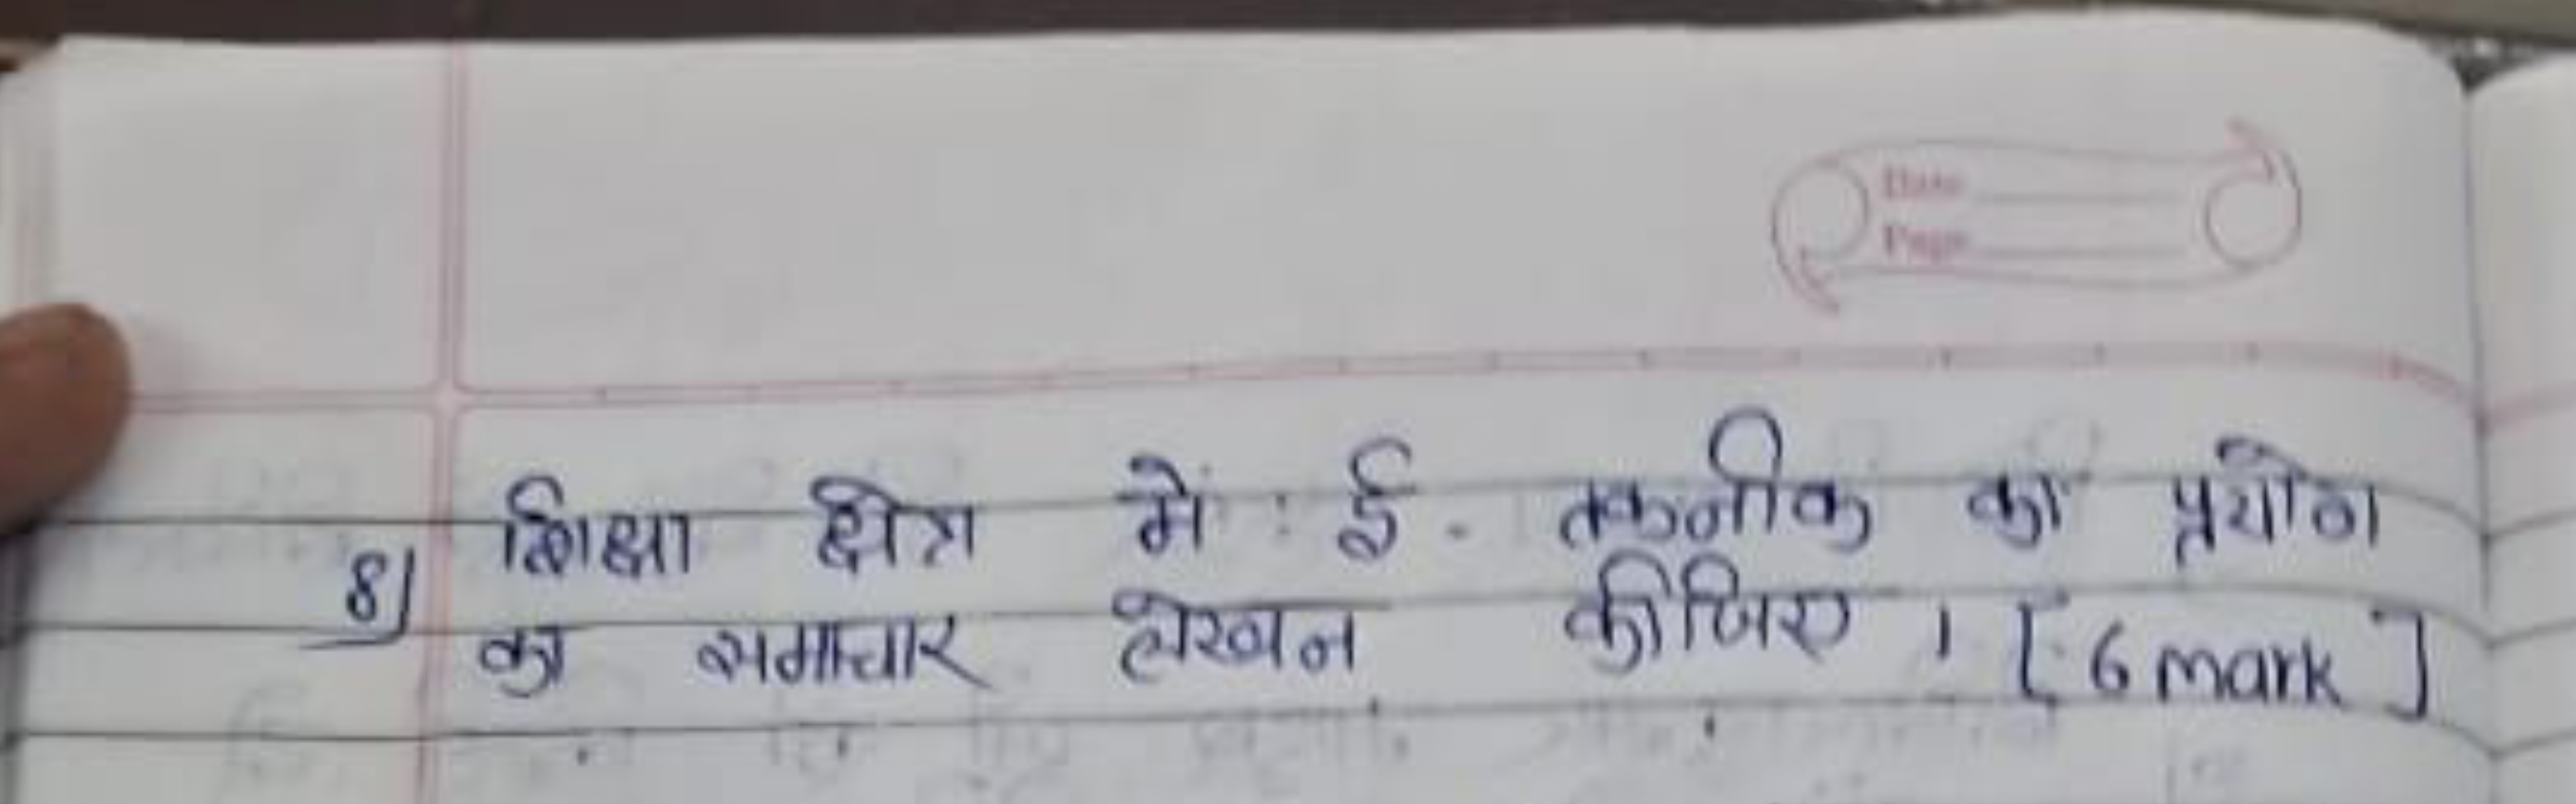 Date
Page
8) शिक्षा क्षेत्र में : ई - तकनीक का प्रयोग
का समाचार लेखन कीजिए । [6 mark]